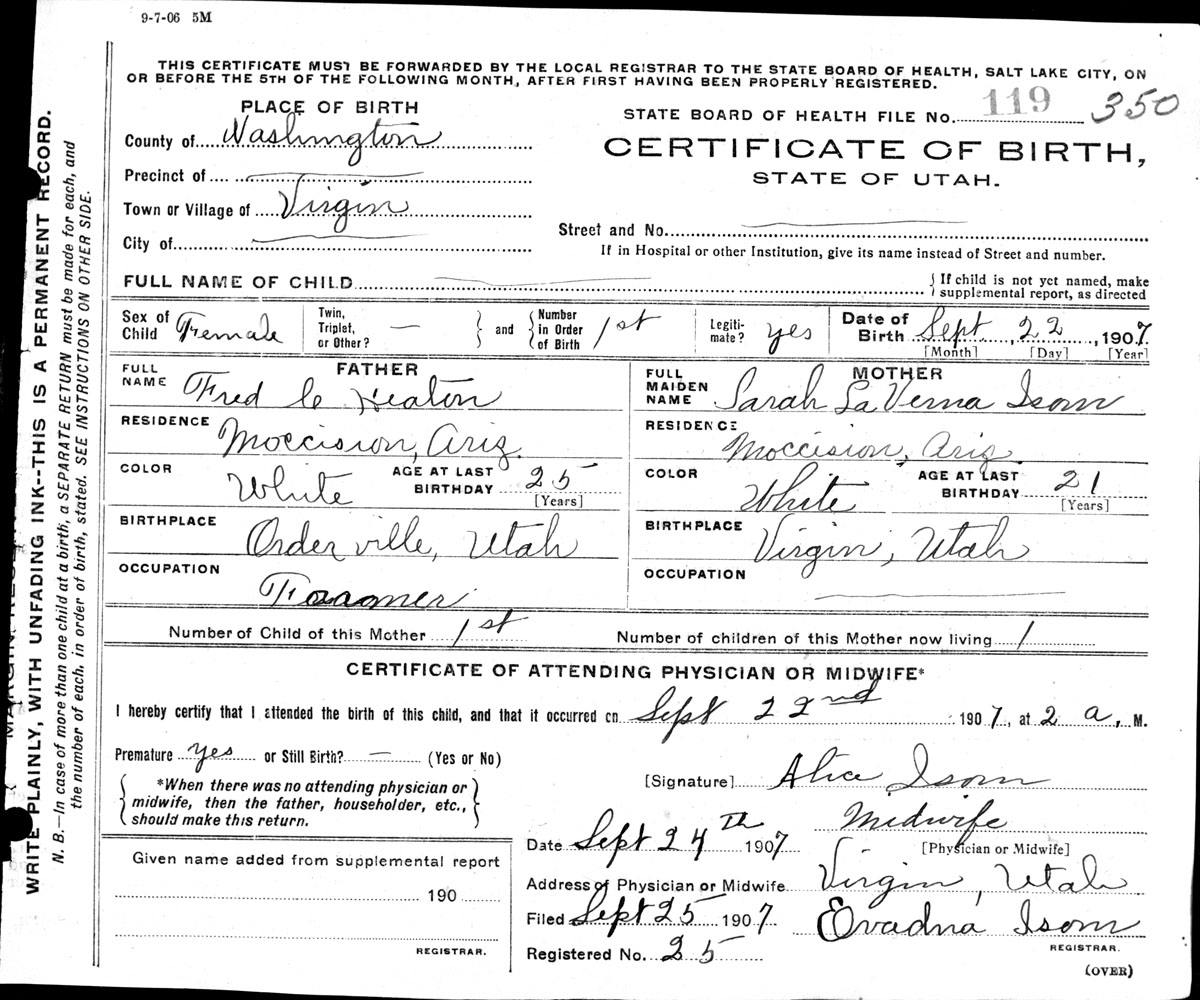 9-7-06 5M
THIS CERTIFICATE MUST BE FORWARDED BY THE LOCAL REGISTRAR TO THE STATE BOARD OF HEALTH, SALT LAKE CITY, ON
OR BEFORE THE 5TH OF THE FOLLOWING MONTH, AFTER FIRST HAVING BEEN PROPERLY REGISTERED.
PLACE OF BIRTH
STATE BOARD OF HEALTH FILE NO. 119 350
County of Washington
CERTIFICATE OF BIRTH,
STATE OF UTAH.
Precinct of
Town or Village of Virgin
Street and No.
City of
If in Hospital or other Institution, give its name instead of Street and number.
FULL NAME OF CHILD
If child is not yet named, make
supplemental report, as directed
Sex of Child Female
Twin, Triplet, or Other? —
and Number in Order of Birth 1st
Legiti-mate? yes
Date of Birth Sept 22, 1907
[Month] [Day] [Year]
FATHER
FULL NAME Fred C Heaton
RESIDENCE Moccision, Ariz.
COLOR White AGE AT LAST BIRTHDAY 25 [Years]
BIRTHPLACE Orderville, Utah
OCCUPATION Faromer
MOTHER
FULL MAIDEN NAME Sarah LaVerna Isom
RESIDENCE Moccision, Ariz
COLOR White AGE AT LAST BIRTHDAY 21 [Years]
BIRTHPLACE Virgin, Utah
OCCUPATION
Number of Child of this Mother 1st Number of children of this Mother now living 1
CERTIFICATE OF ATTENDING PHYSICIAN OR MIDWIFE*
I hereby certify that I attended the birth of this child, and that it occurred on Sept 22nd 1907, at 2 a, M.
Premature yes or Still Birth? — (Yes or No)
*When there was no attending physician or
midwife, then the father, householder, etc.,
should make this return.
[Signature] Alice Isom
Midwife
[Physician or Midwife]
Date Sept 24th 1907
Address of Physician or Midwife Virgin, Utah
Filed Sept 25 1907 Evadna Isom
REGISTRAR.
Registered No. 25
(OVER)
Given name added from supplemental report
190
REGISTRAR.
WRITE PLAINLY, WITH UNFADING INK--THIS IS A PERMANENT RECORD.
N. B.—In case of more than one child at a birth, a SEPARATE RETURN must be made for each, and
the number of each, in order of birth, stated. SEE INSTRUCTIONS ON OTHER SIDE.